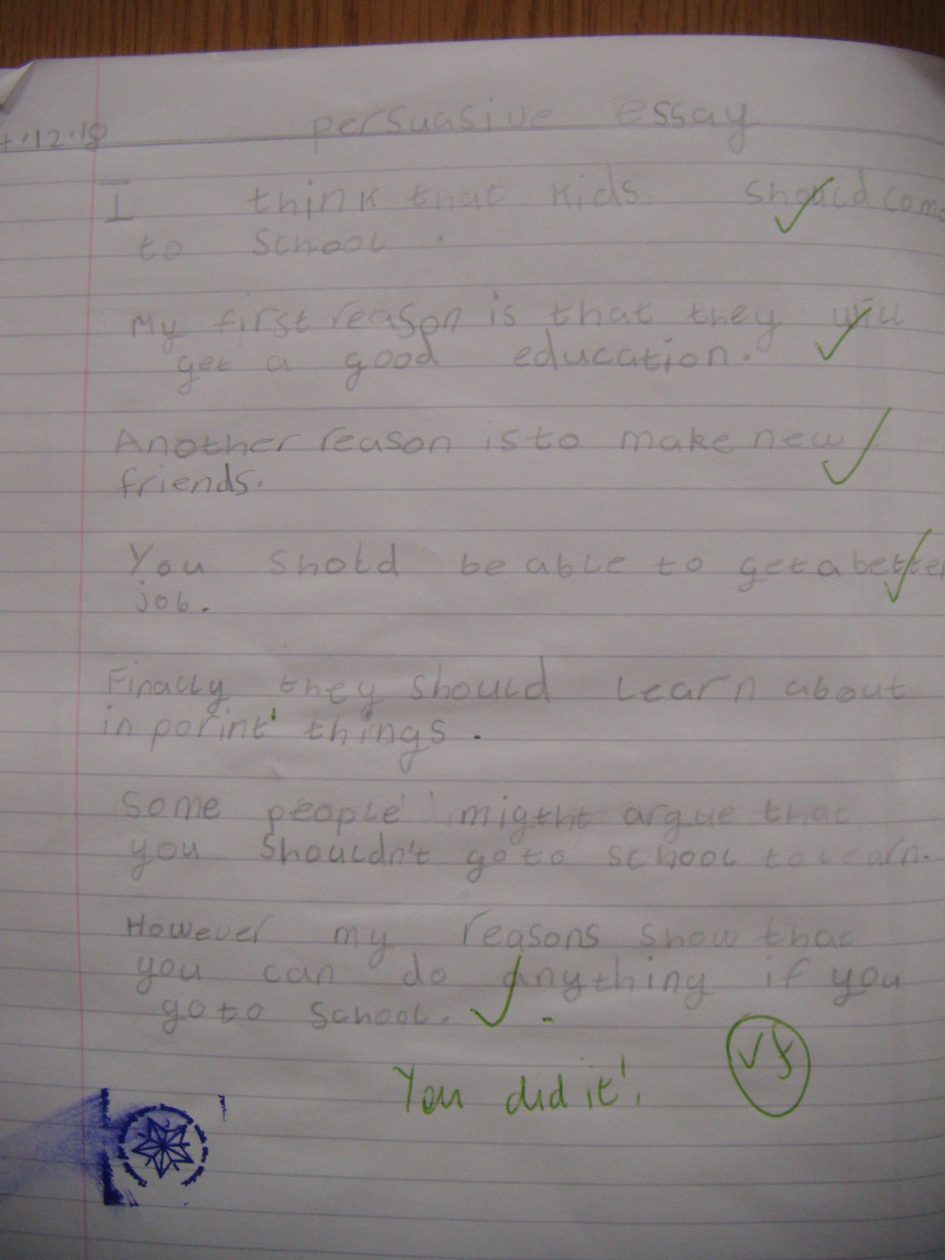 persuasive essay
I think that kids should com
to school.
My first reason is that they will
get a good education.
Another reason is to make new
friends.
You shold be able to get a better
job.
Finally they should learn about
inporint things.
Some people migtht argue that
you shouldn't go to school to learn.
However my reasons show that
you can do anything if you
go to school.
You did it!